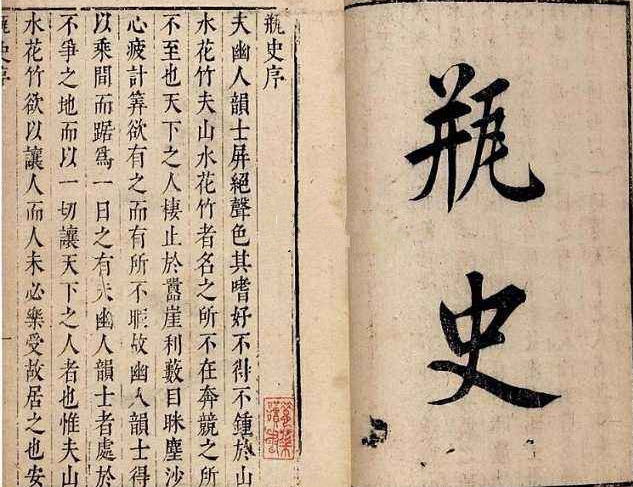 瓶史
瓶史序
夫幽人韻士屏絕聲色其嗜好不得不鍾於山
水花竹夫山水花竹者名之所不在奔競之所
不至也天下之人棲止於囂崖利藪目眯塵沙
心疲計筭欲有之而有所不暇故幽人韻士得
以乘間而踞爲一日之有夫幽人韻士者處於
不爭之地而以一切讓天下之人者也惟夫山
水花竹欲以讓人而人未必樂受故居之也安
瓶史序